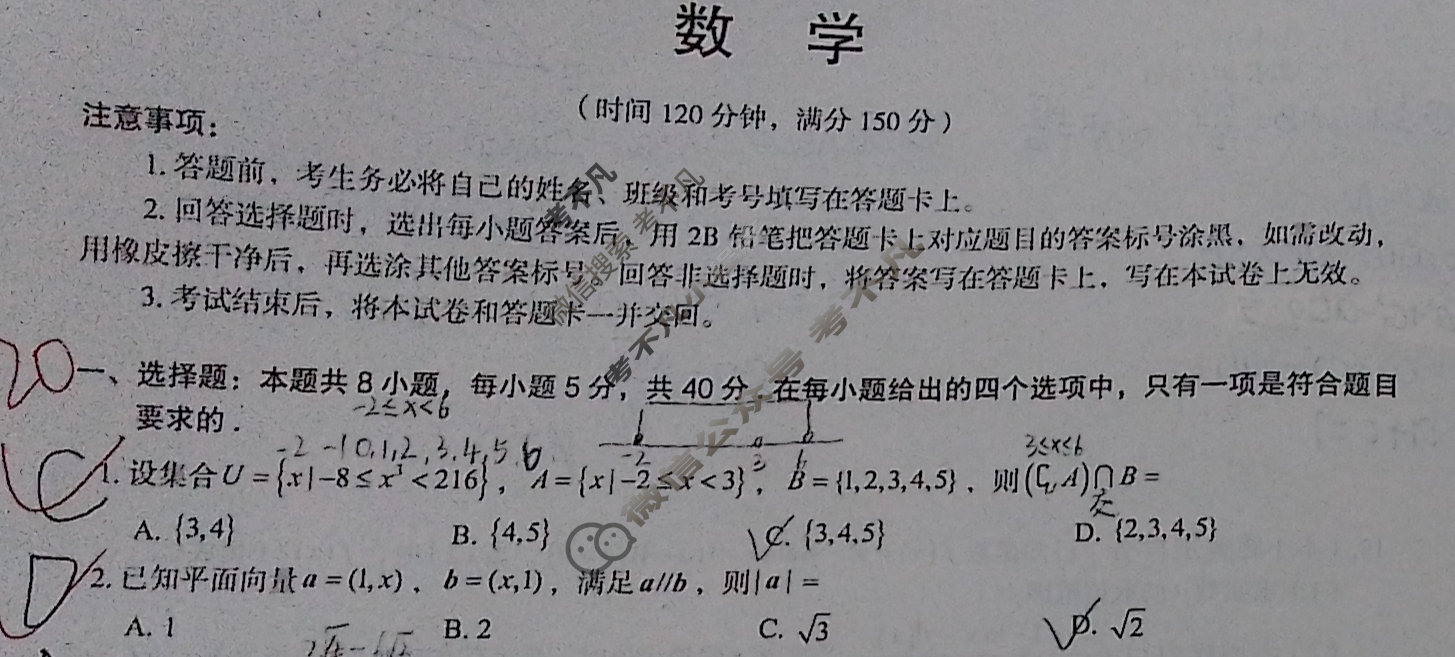 数 学
（时间 120 分钟，满分 150 分）
注意事项：
1. 答题前，考生务必将自己的姓名、班级和考号填写在答题卡上。
2. 回答选择题时，选出每小题答案后，用 2B 铅笔把答题卡上对应题目的答案标号涂黑，如需改动，
用橡皮擦干净后，再选涂其他答案标号。回答非选择题时，将答案写在答题卡上，写在本试卷上无效。
3. 考试结束后，将本试卷和答题卡一并交回。
20
一、选择题：本题共 8 小题，每小题 5 分，共 40 分．在每小题给出的四个选项中，只有一项是符合题目
要求的．
-2≤x<6
-2 -1 0,1,2,3,4,5,6
-2 3 6
3≤x≤6
C
1. 设集合 U = {x | -8 ≤ x³ < 216}，A = {x | -2 ≤ x < 3}，B = {1,2,3,4,5}，则 (∁ᵤA)∩B =
交
A. {3,4} B. {4,5} C. {3,4,5} D. {2,3,4,5}
D
2. 已知平面向量 a = (1,x)，b = (x,1)，满足 a//b，则 | a | =
A. 1 B. 2 C. √3 D. √2
考不凡
微信搜索 考不凡
考不凡
微信公众号 考不凡